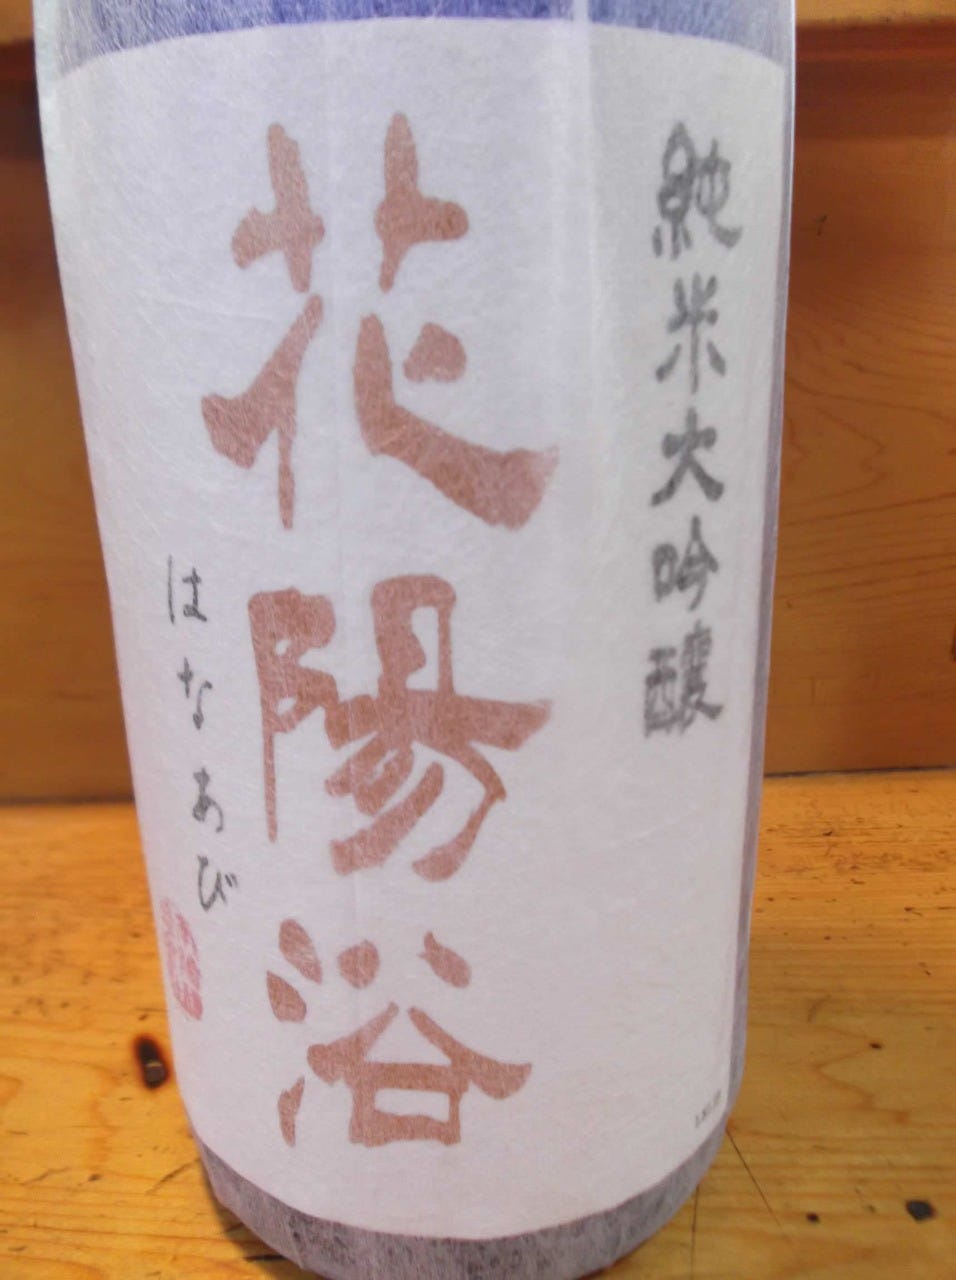 純米大吟醸
花陽浴
はなあび